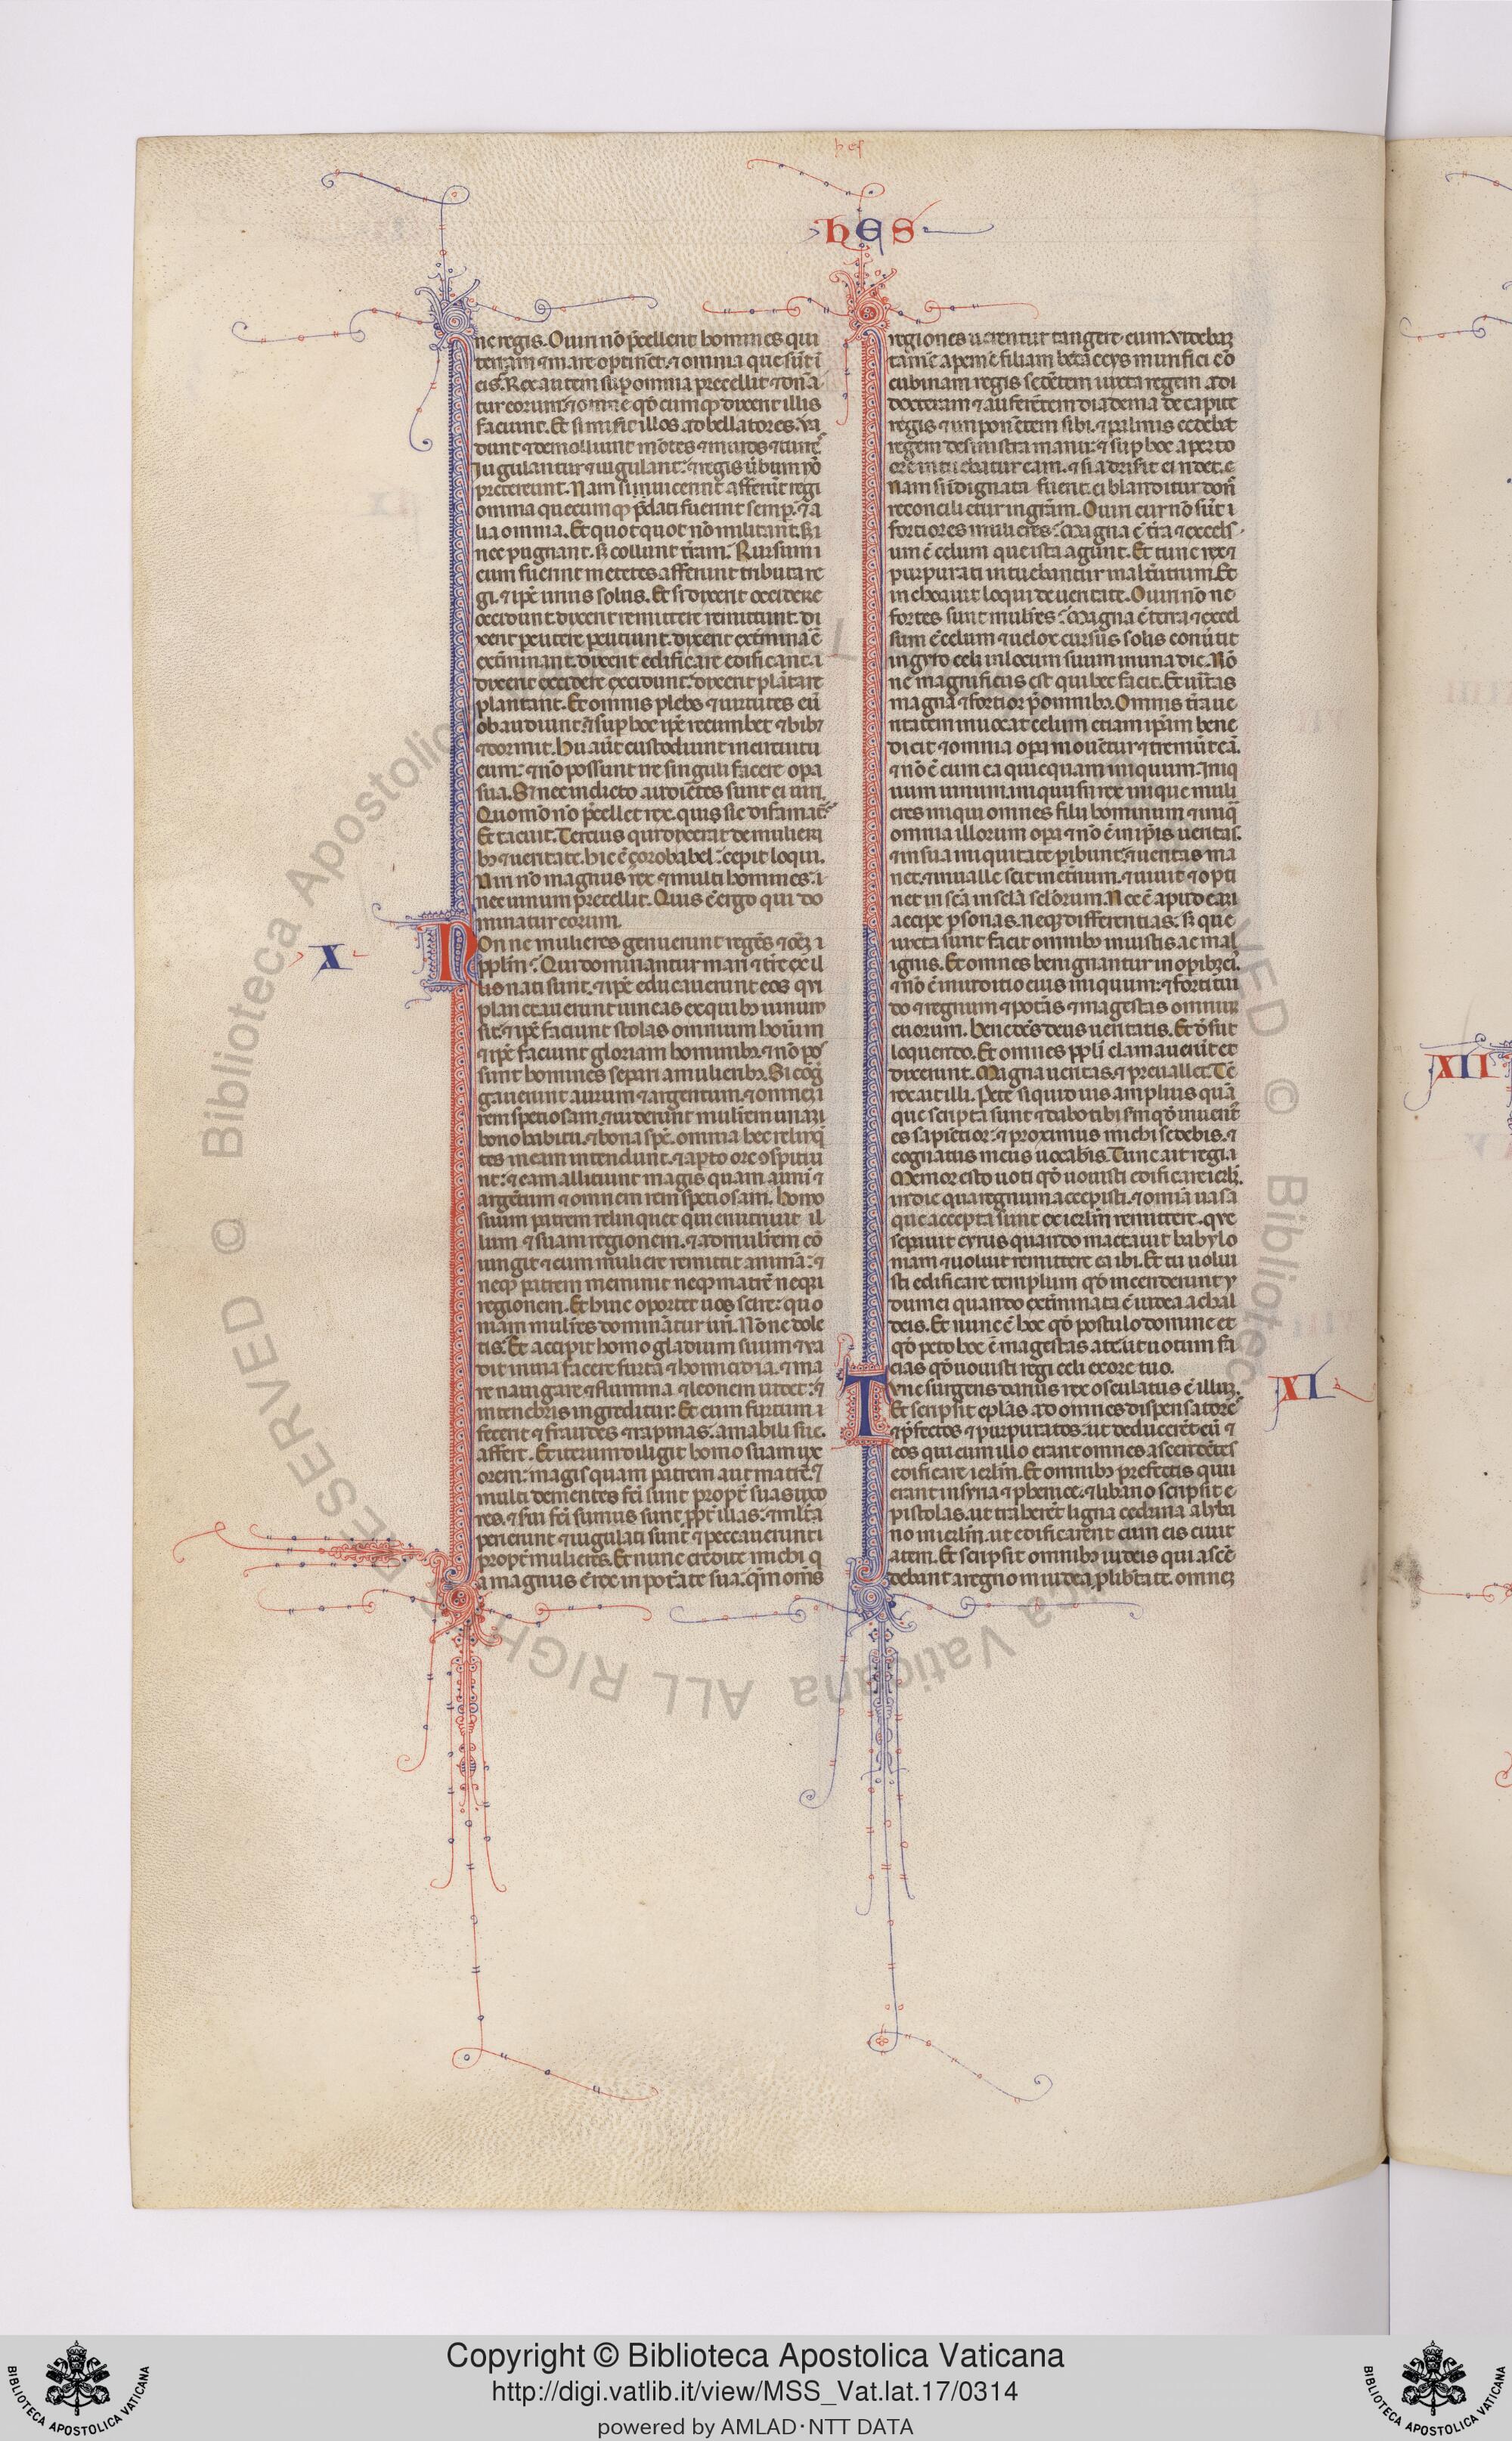 hes
hes
ne regis. O uiri nō p̄cellent homines qui
terram ⁊ mare optinēt. ⁊ omnia que sūt ī
eis. Rex autem sup omnia precellit ⁊ dn̄a
tur eorum. ⁊ omne qd̄ cumq dixerit illis
faciunt. Et si misit illos ad bellatores. Va
dunt ⁊ demoliunt mōtes ⁊ muros ⁊ turres
Iugulantur ⁊ iugulant. ⁊ regis ūbum nō
pretereunt. Nam si uicerint afferūt regi
omnia quecumq p̄dati fuerint semp. ⁊ a
lia omnia. Et quotquot nō militant.
nec pugnant. s; collunt trām. Rursum
cum fuerint metetes afferunt tributa re
gi. ⁊ ipē unus solus. Et si dixerit occidere
occidunt. dixerit remittere remittunt. di
xerit pcutere pcutiunt. dixerit exterminare
exterminant. dixerit edificare edificant.
dixerit excidere excidunt. dixerit plātare
plantant. Et omnis plebs ⁊ uirtutes eū
obaudiunt. ⁊ sup hoc ipē recumbet ⁊ bibet
⁊ dormit. Hii aūt custodiunt in circuitu
eum. ⁊ nō possunt ire singuli facere opa
sua. Si nec in dicto audiētes sunt ei uiri.
Quomō nō p̄cellet rex. quis sic difamat.
Et tacuit. Tercius qui dixerat de mulieri
b; ⁊ ueritate. hic ē çorobabel. cepit loqui.
Viri nō magnus rex ⁊ multi homines.
nec uinum precellit. Quis ē ergo qui do
minatur eorum.
X
Nonne mulieres genuerunt reges ⁊ oēz
pplm. Qui dominantur mari ⁊ tre ex il
lis nati sunt. ⁊ ipē educauerunt eos qui
plantauerunt uineas ex quib; uinum
fit. ⁊ ipē faciunt stolas omnium hoium
⁊ ipē faciunt gloriam hominib;. ⁊ nō pos
sunt homines separi a mulierib;. Si cōg̃
gauerunt aurum ⁊ argentum. ⁊ omnez
rem speciosam. ⁊ uiderint muliem unam
bono habitu. ⁊ bona spē. omnia hec relinq̄
tes in eam intendunt. ⁊ apto ore ɔspiciū
nt. ⁊ eam alliciunt magis quam aurū ⁊
argētum ⁊ omnem rem speciosam. homo
suum patrem relinquet qui enutriuit il
lum ⁊ suam regionem. ⁊ ad muliem cō
iungit ⁊ cum muliere remittit animā. ⁊
neq patrem meminit neq matrē neq
regionem. Et hinc oportet uos scire. quo
niam mulies dominātur uri. Nōne dole
tis. Et accipit homo gladium suum ⁊ va
dit in uia facere furta ⁊ homicidia. ⁊ ma
re nauigare ⁊ flumina ⁊ leonem uidet. ⁊
in tenebris ingreditur. Et cum furtum
fecerit ⁊ fraudes ⁊ rapinas. amabili sue.
affert. Et iterum diligit homo suam ux
orem. magis quam patrem aut matrē. ⁊
multi dementes fci sunt propt suas uxo
res. ⁊ serui fci sumus sunt ppt illas. ⁊ multa
perierunt ⁊ iugulati sunt ⁊ peccauerunt
propt mulieres. Et nunc credite michi q
a magnus ē rex in potāte sua. qm̄ omēs
regiones uerentur tangere eum. videbaz
tamē apemē filiam becacys munifici cō
cubinam regis sedētem iuxta regem ad
dexteram ⁊ auferētem diadema de capite
regis ⁊ imponētem sibi. ⁊ palmis cedebāt
regem de sinistra manu. ⁊ sup hoc aperto
ore intuebatur eam. ⁊ si adriserit ei ridet.
Nam si īdignata fuerit ei blanditur don̄
reconcilietur in grām. O uiri cur nō sūt
fortiores mulieres. Magna ē tra ⁊ excels
um ē celum que ista agunt. Et tunc rex ⁊
purpurati intuebantur in alterutrum. Et
inchoauit loqui de ueritate. O uiri nō ne
fortes sunt mulies. Magna ē terra ⁊ excel
sum ē celum ⁊ uelox cursus solis conūtit
in gyro celi in locum suum in una die. Nō
ne magnificus est qui hec facit. Et ueritas
magna ⁊ fortior p̄ omnib;. Omnis tra ue
ritatem inuocat celum etiam ipsam bene
dicit ⁊ omnia opa mouētur ⁊ tremūt eā.
⁊ nō ē cum ea quicquam iniquum. Iniq
uum uinum. iniquus rex inique muli
eres iniqui omnes filii hominum ⁊ iniq̄
omnia illorum opa ⁊ nō ē in ipsis ueritas.
⁊ in sua iniquitate pibunt. ⁊ ueritas ma
net. ⁊ inualescit in eternum. ⁊ uiuit ⁊ opti
net in scla sclorum. Nec ē apud eam
accipe psonas. neq differentias. s; que
iuxta sunt facit omnib; iniustis ac mal
ignis. Et omnes benignantur in opib; ei.
⁊ nō ē in iuditio eius iniquum. ⁊ fortitu
do ⁊ regnum ⁊ potās ⁊ magestas omnium
euorum. Benedcs deus ueritatis. Et desiit
loquendo. Et omnes ppli clamauerūt et
dixerunt. Magna ueritas. ⁊ preuallet. Tc̄
rex ait illi. Pete si quid uis amplius quā
que scripta sunt ⁊ dabo tibi sm qd̄ inuent
es sapiētior. ⁊ proximus michi sedebis. ⁊
cognatus meus uocabis. Tunc ait regi
Memor esto uoti qd̄ uouisti edificare ierlm.
in die qua regnum accepisti. ⁊ omia uasa
que accepta sunt ex ierlm remittere. que
separuit cyrus quando mactauit babylo
niam ⁊ uoluit remittere ea ibi. Et tu uolui
sti edificare templum qd̄ incenderunt y
dumei quando exterminata ē iudea a chal
deis. Et nunc ē hoc qd̄ postulo domine et
qd̄ peto hoc ē magestas a te ut uotum fa
cias qd̄ uouisti regi celi ex ore tuo.
XI
Tvnc surgens darius rex osculatus ē illum.
Et scripsit eplas ad omnes dispensatores
⁊ p̄fectos ⁊ purpuratos. ut deducerēt eū ⁊
eos qui cum illo erant omnes ascendētes
edificare ierlm. Et omnib; prefectis qui
erant in syria ⁊ phenice. ⁊ libano scripsit e
pistolas. ut traherēt ligna cedrina a lyba
no in ierlm. ut edificarent cum eis ciuit
atem. Et scripsit omnib; iudeis qui ascē
debant a regno in iudea p libtate. omnez
XII
Copyright © Biblioteca Apostolica Vaticana
http://digi.vatlib.it/view/MSS_Vat.lat.17/0314
powered by AMLAD·NTT DATA
BIBLIOTECA APOSTOLICA VATICANA
BIBLIOTECA APOSTOLICA VATICANA